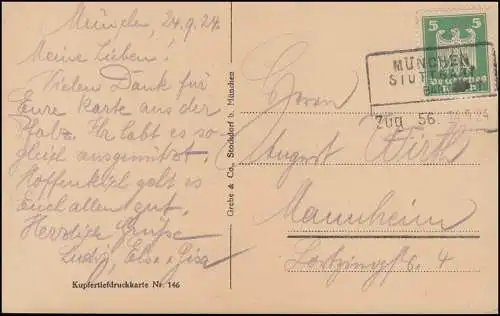 München, 24.9.24.
Meine Lieben!
Vielen Dank für
Eure Karte aus der
Pfalz. Ihr habt es so-
gleich ausgenützt.
Hoffentlich geht es
Euch allen gut.
Herzlige Grüsse
Ludwig, Else u. Gisa
Kupfertiefdruckkarte Nr. 146
Grebe & Co., Stockdorf b. München
5 5
Deutsches
Reich
MÜNCHEN
STUTT
Zug 56 24.9.24
Herrn
August Wirth
Mannheim
Lortzingstr. 4